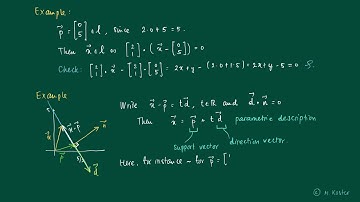 Example:
p⃗ = [0 5] ∈ l, since 2·0+5 = 5.
Then x⃗ ∈ l ⇔ [2 1] · (x⃗ − [0 5]) = 0
Check: [2 1]·x⃗ − [2 1]·[0 5] = 2x+y − (2·0+1·5) = 2x+y−5 = 0
Example
Write x⃗−p⃗ = t d⃗, t∈ℝ and d⃗ · n⃗ = 0
Then x⃗ = p⃗ + t d⃗ parametric description
support vector direction vector.
Here, for instance – for p⃗ = [
5
x⃗
x⃗−p⃗
n⃗
p⃗
d⃗
© H. Koster